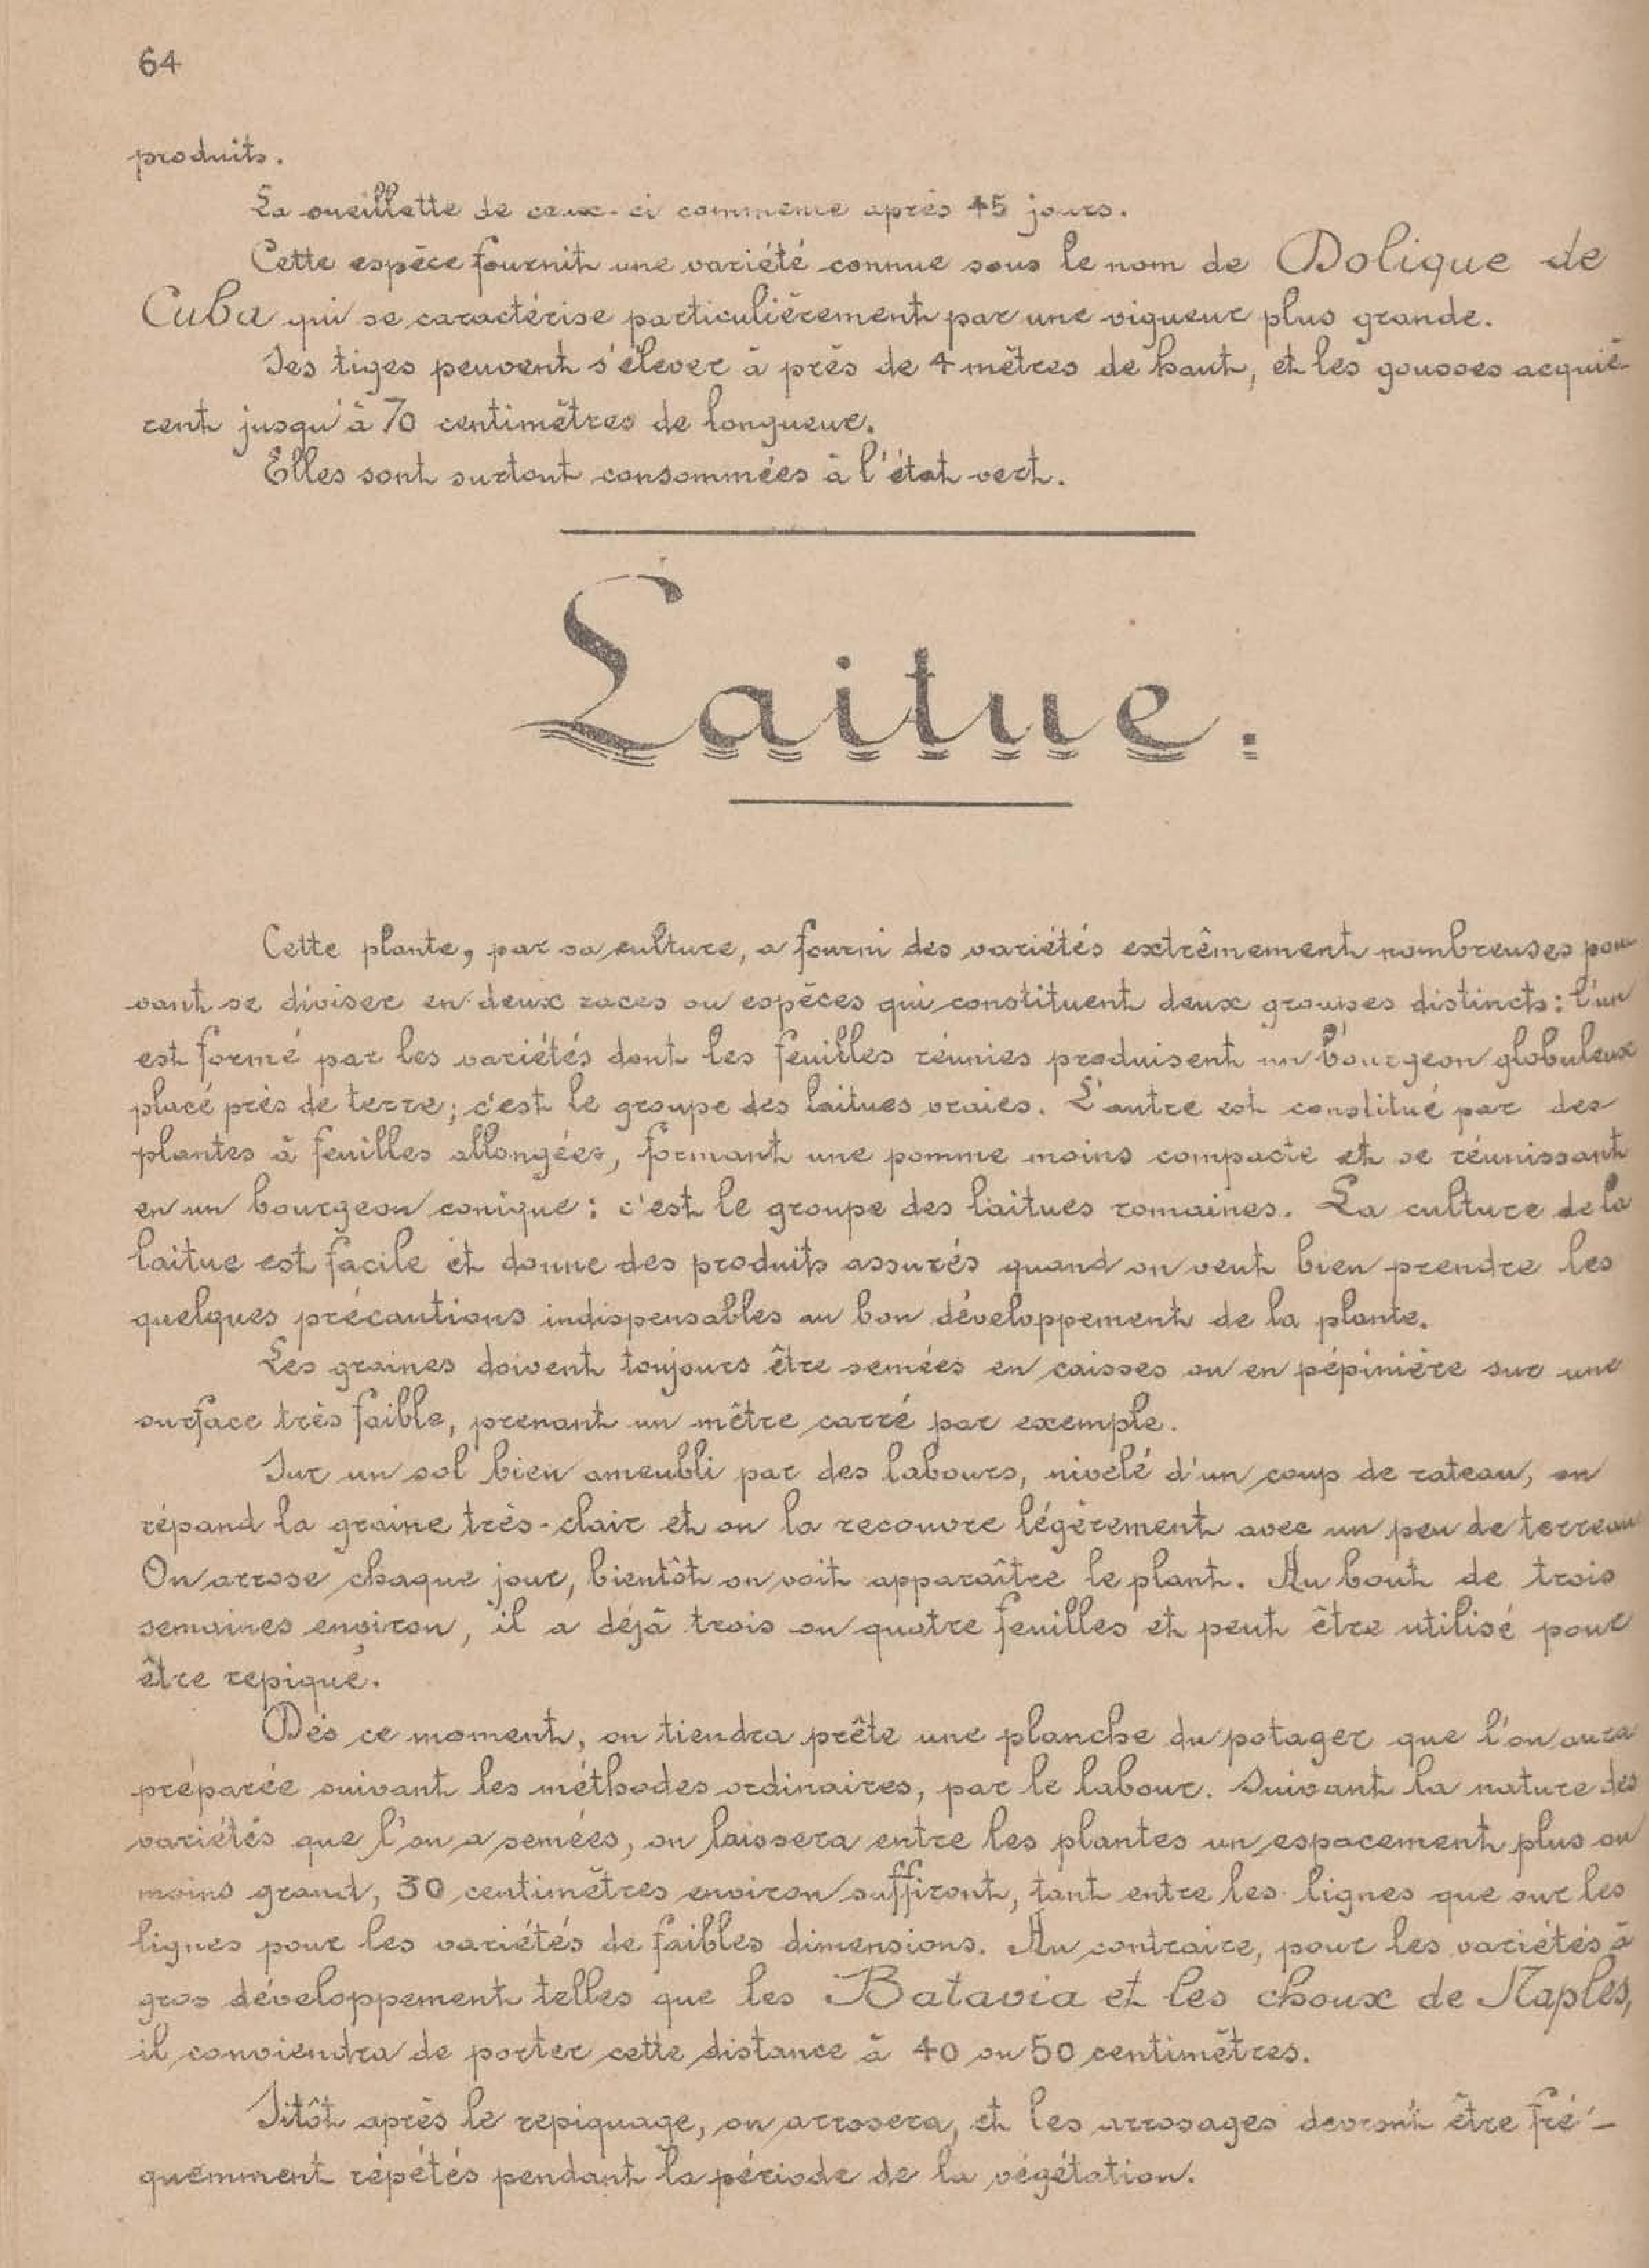 64
produits.
La cueillette de ceux-ci commence après 45 jours.
Cette espèce fournit une variété connue sous le nom de Dolique de
Cuba qui se caractérise particulièrement par une vigueur plus grande.
Ses tiges peuvent s'élever à près de 4 mètres de haut, et les gousses acquiè-
rent jusqu'à 70 centimètres de longueur.
Elles sont surtout consommées à l'état vert.
Laitue.
Cette plante, par sa culture, a fourni des variétés extrêmement nombreuses pou
vant se diviser en deux races ou espèces qui constituent deux groupes distincts: l'un
est formé par les variétés dont les feuilles réunies produisent un bourgeon globuleux
placé près de terre; c'est le groupe des laitues vraies. L'autre est constitué par des
plantes à feuilles allongées, formant une pomme moins compacte et se réunissant
en un bourgeon conique: c'est le groupe des laitues romaines. La culture de la
laitue est facile et donne des produits assurés quand on veut bien prendre les
quelques précautions indispensables au bon développement de la plante.
Les graines doivent toujours être semées en caisses ou en pépinière sur une
surface très faible, prenant un mètre carré par exemple.
Sur un sol bien ameubli par des labours, nivelé d'un coup de rateau, on
répand la graine très-clair et on la recouvre légèrement avec un peu de terreau
On arrose chaque jour, bientôt on voit apparaître le plant. Au bout de trois
semaines environ, il a déjà trois ou quatre feuilles et peut être utilisé pour
être repiqué.
Dès ce moment, on tiendra prête une planche du potager que l'on aura
préparée suivant les méthodes ordinaires, par le labour. Suivant la nature des
variétés que l'on a semées, on laissera entre les plantes un espacement plus ou
moins grand, 30 centimètres environ suffiront, tant entre les lignes que sur les
lignes pour les variétés de faibles dimensions. Au contraire, pour les variétés à
gros développement telles que les Batavia et les choux de Naples,
il conviendra de porter cette distance à 40 ou 50 centimètres.
Sitôt après le repiquage, on arrosera, et les arrosages devront être fré-
quemment répétés pendant la période de la végétation.